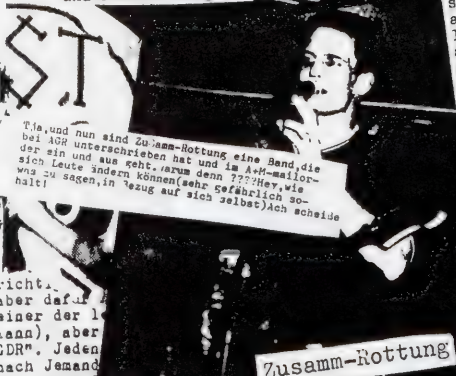 ST
Tja,und nun sind Zusamm-Rottung eine Band,die
bei AGR unterschrieben hat und im A+M-mailor-
der ein und aus geht.Warum denn ????Hey,wie
sich Leute ändern können(sehr gefährlich so-
was zu sagen,in Bezug auf sich selbst)Ach scheide
halt!
richti
aber dafür
einer der l
ann), aber
DR". Jeden
nach Jemand
Zusamm-Rottung